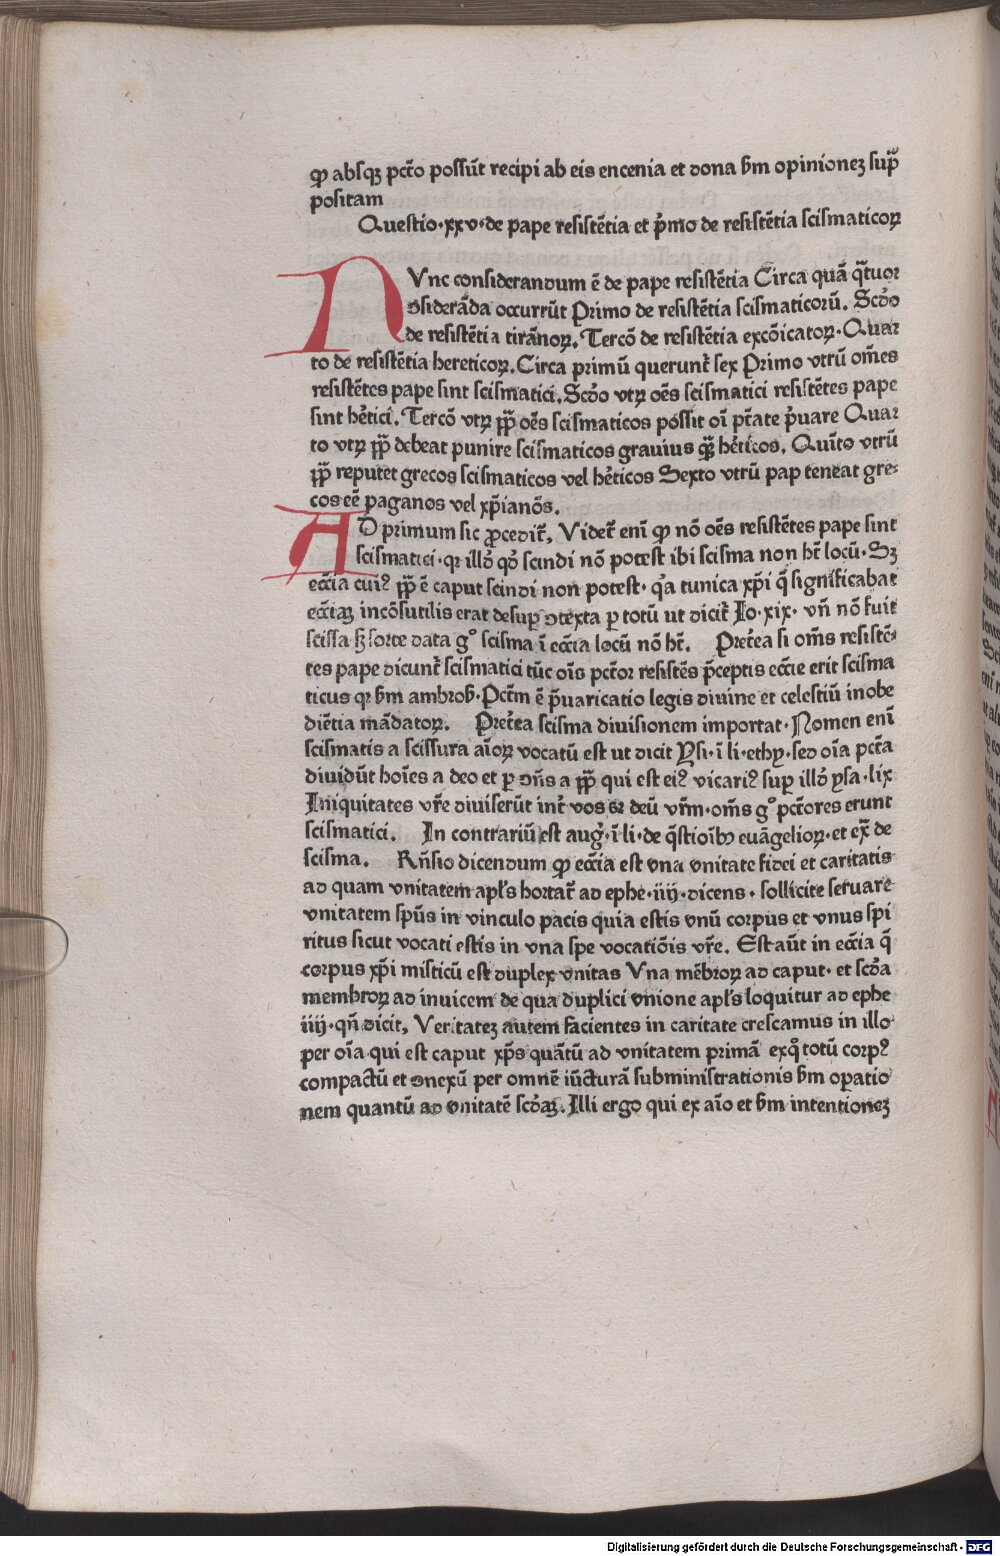 ꝙ absqꝫ pct̄o possūt recipi ab eis encenia et dona ẜm opinioneꝫ sup̄
positam
Questio·xxv·de pape resistētia et p̄mo de resistētia scismaticoꝝ
NVnc considerandum ē de pape resistētia Circa quā q̄tuor
ↄsiderāda occurrūt Primo de resistētia scismaticorū. Scd̄o
de resistētia tirānoꝝ. Tercō de resistētia excōicatoꝝ·Quar
to de resistētia hereticoꝝ. Circa primū querunt᷑ sex Primo vtrū om̄es
resistētes pape sint scismatici. Scd̄o vtꝝ oēs scismatici resistētes pape
sint hēt́ici. Tercō vtꝝ pp̄ oēs scismaticos possit oī pt̄ate p̄uare Quar
to vtꝝ pp̄ debeat punire scismaticos grauius ꝙ̄ hēt́icos. Quīto vtrū
pp̄ reputet grecos scismaticos vel hēt́icos Sexto vtrū pap teneat gre-
cos eē paganos vel xp̄ianōs.
AD primum sic ꝓcedit᷑, Videt᷑ enī ꝙ nō oēs resistētes pape sint
scismatici·qꝛ illd̓ qd̓ scindi nō potest ibi scisma non hꝫ locū·Sꝫ
ecc̄ia cuiꝰ pp̄ ē caput scindi non potest· q̓a tunica xp̄i q̄ significabat
ecc̄iaꝫ incōsutilis erat desuꝑ ↄtexta ꝑ totū ut dicit᷑ Io·xix· vn̄ nō fuit
scissa sꝫ sorte data gͦ scisma ī ecc̄ia locū nō hꝫ. Pret́ea si om̄s resistē-
tes pape dicunt᷑ scismatici tūc oīs pct̄or resistēs p̄ceptis ecc̄ie erit scisma
ticus qꝛ ẜm ambroẜ·Pct̄m ē p̄uaricatio legis diuine et celestiū inobe
diētia mādatoꝝ. Pret́ea scisma diuisionem importat·Nomen enī
scismatis a scissura aīoꝝ vocatū est ut dicit Ysi·ī li·ethy·sed oīa pct̄a
diuidūt hoīes a deo et ꝑ ↄn̄s a pp̄ qui est eiꝰ vicariꝰ suꝑ illd̓ ysa·lix
Iniquitates vr̄e diuiserūt int̓ vos ⁊ deū vr̄m·om̄s gͦ pct̄ores erunt
scismatici. In contrariū est aug᷑·ī li·de q̄stioībꝰ euāgelioꝝ·et ex̄ de
scisma. Rn̄sio dicendum ꝙ ecc̄ia est vna vnitate fidei et caritatis
ad quam vnitatem apl̄s hortat᷑ ad ephe·iiij·dicens·sollicite seruare
vnitatem spūs in vinculo pacis quia estis vnū corpus et vnus spi
ritus sicut vocati estis in vna spe vocatiōis vr̄e. Est aūt in ecc̄ia q̄
corpus xp̄i misticū est duplex vnitas Vna mēbroꝝ ad caput·et scd̄a
membroꝝ ad inuicem de qua duplici vnione apl̄s loquitur ad ephe
iiij·qn̄ dicit, Veritateꝫ autem facientes in caritate crescamus in illo
per oīa qui est caput xp̄s quātū ad vnitatem primā exq̊ totū corpꝰ
compactū et ↄnexū per omnē iūcturā subministrationis ẜm oꝑatio
nem quantū ad vnitatē scd̄aꝫ. Illi ergo qui ex aīo et ẜm intentioneꝫ
Digitalisierung gefördert durch die Deutsche Forschungsgemeinschaft - DFG